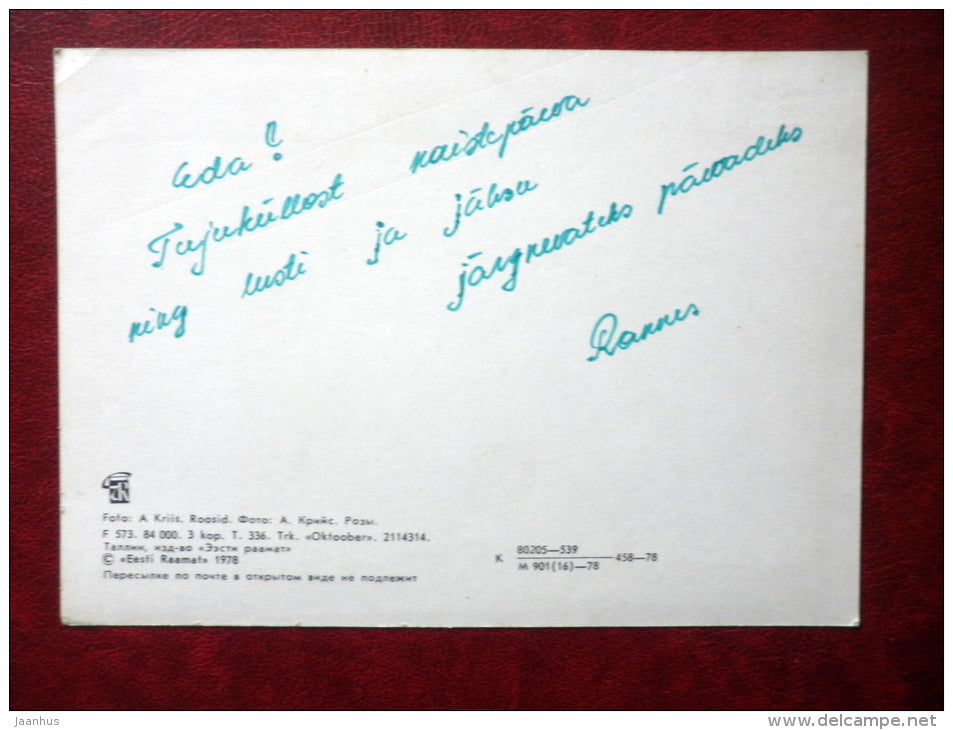 Eda!
Tujuküllast naistepäeva
ning lusti ja jaksu
järgnevateks päevadeks
Rannes
Foto: A. Kriis. Roosid. Фото: А. Крийс. Розы.
F 573. 84 000. 3 kop. T. 336. Trk. «Oktoober». 2114314.
Таллин, изд-во «Ээсти раамат»
© «Eesti Raamat» 1978
Пересылке по почте в открытом виде не подлежит
К 80205—539 458—78
М 901(16)—78
jaanhus
www.delcampe.net